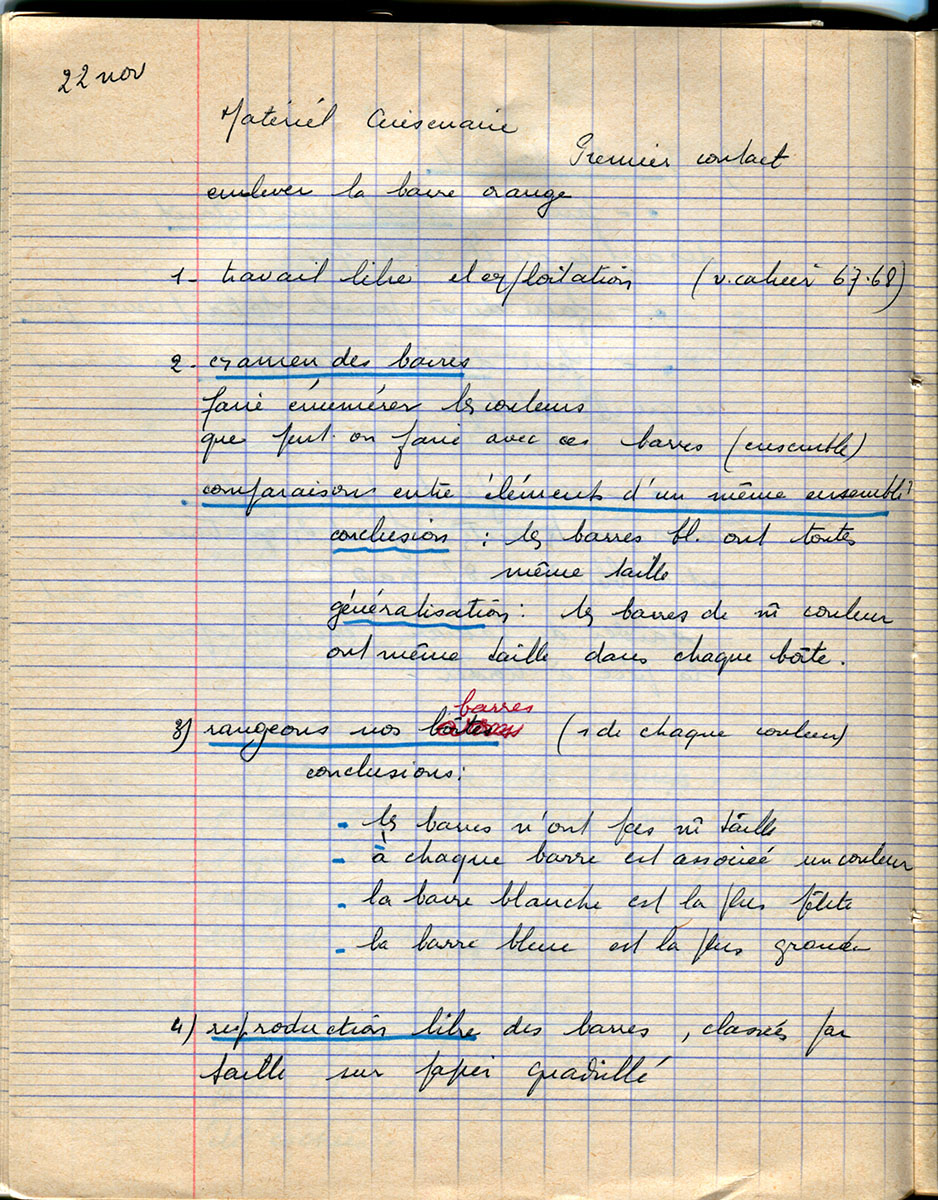 22 nov
Matériel Cuisenaire
Premier contact
enlever la barre orange
1- travail libre et exploitation (v. cahier 67.68)
2- examen des barres
faire énumérer les couleurs
que peut-on faire avec ces barres (ensemble)
comparaison entre éléments d'un même ensemble
conclusion : les barres bl. ont toutes
même taille
généralisation : les barres de m̂ couleur
ont même taille dans chaque boîte.
barres
3) rangeons nos (1 de chaque couleur)
conclusions :
- les barres n'ont pas m̂ taille
- à chaque barre est associée un couleur
- la barre blanche est la plus petite
- la barre bleue est la plus grande
4) reproduction libre des barres, classées par
taille sur papier quadrillé